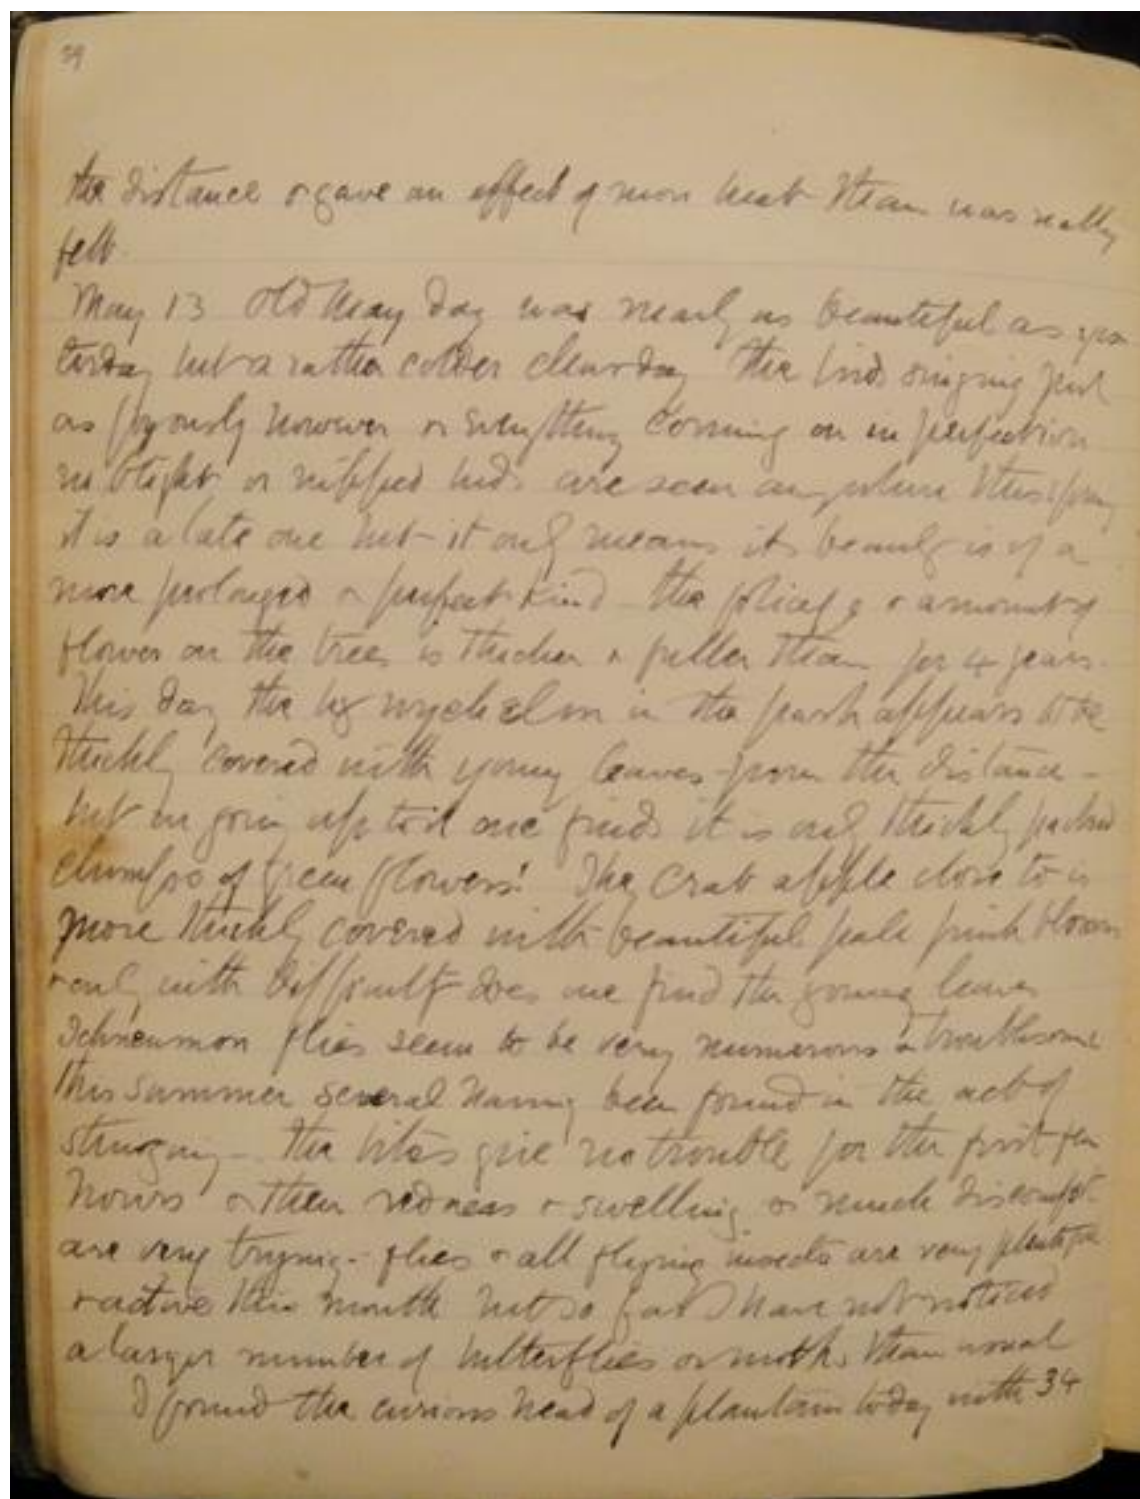 39
the distance & gave an effect of more heat than was really
felt.
May 13 Old May Day was nearly as beautiful as yes
terday but a rather colder clear day The birds singing just
as joyously however & everything coming on in perfection
no blight or nipped buds are seen anywhere this spring
it is a late one but it only means its beauty is of a
more prolonged & perfect kind the foliage & amount of
flower on the trees is thicker & fuller than for 4 years.
This day the big wych elm in the park appears to be
thickly covered with young leaves from the distance -
but on going up to it one finds it is only thickly packed
clumps of green flowers! The Crab apple close to is
more thickly covered with beautiful pale pink blossom
& only with difficulty does one find the young leaves
Ichneumon flies seem to be very numerous & troublesome
this summer several having been found in the act of
stinging - the bites give no trouble for the first few
hours & then redness & swelling & much discomfort
are very trying - flies & all flying insects are very plentiful
& active this month but so far I have not noticed
a larger number of butterflies or moths than usual
I found the curious head of a plantain today with 34